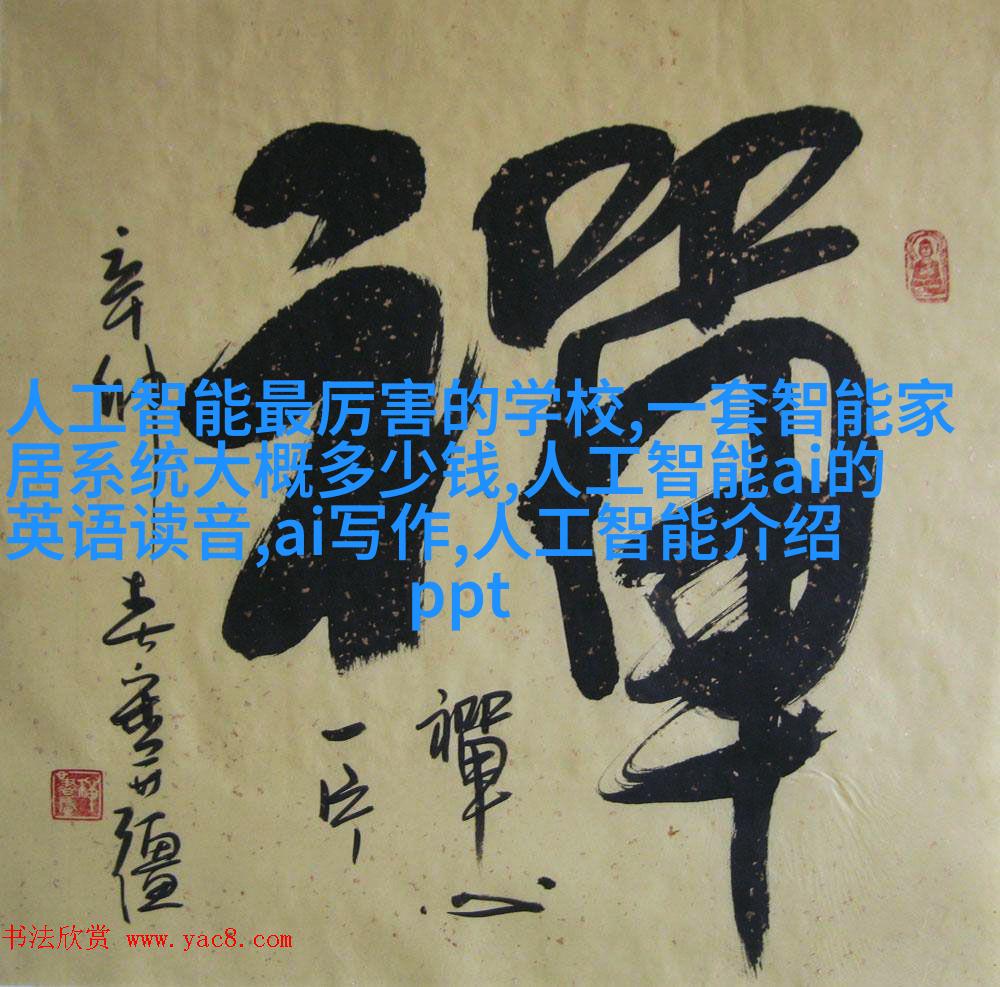 禪
禪心
一片
辛卯春
人工智能最厉害的学校,一套智能家
居系统大概多少钱,人工智能ai的
英语读音,ai写作,人工智能介绍
ppt
书法欣赏 www.yac8.com